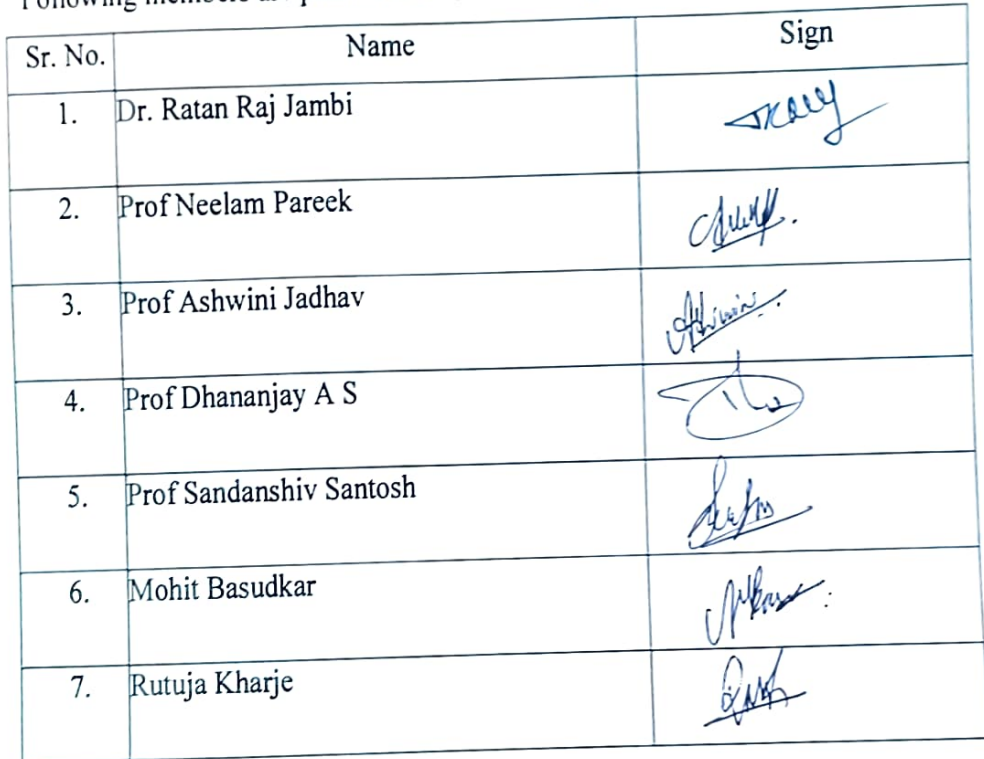 Following members are p
Sr. No. Name Sign
1. Dr. Ratan Raj Jambi
2. Prof Neelam Pareek
3. Prof Ashwini Jadhav Ashwini
4. Prof Dhananjay A S
5. Prof Sandanshiv Santosh
6. Mohit Basudkar
7. Rutuja Kharje